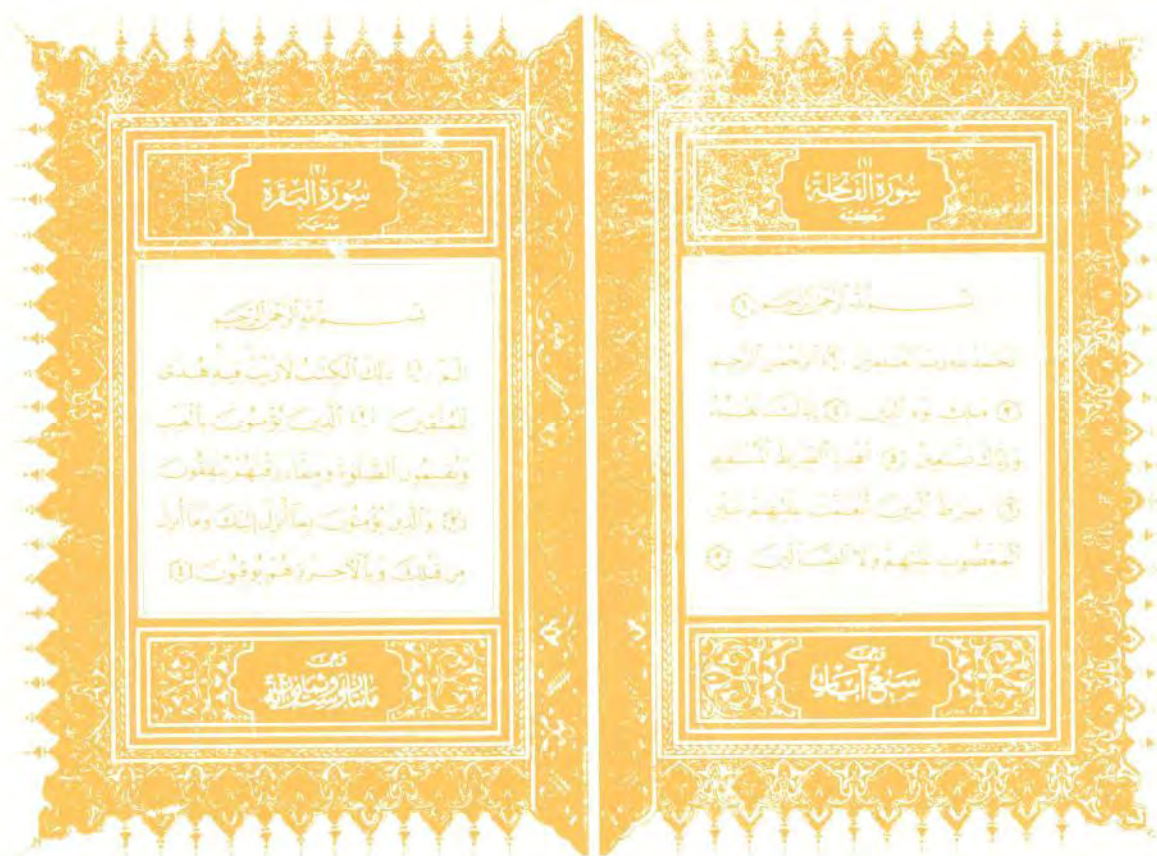 (١)
سُورَةُ الفَاتِحَةِ
مَكِّيَّة
بِسْمِ ٱللَّهِ ٱلرَّحْمَٰنِ ٱلرَّحِيمِ ﴿١﴾
ٱلْحَمْدُ لِلَّهِ رَبِّ ٱلْعَٰلَمِينَ ﴿٢﴾ ٱلرَّحْمَٰنِ ٱلرَّحِيمِ
﴿٣﴾ مَٰلِكِ يَوْمِ ٱلدِّينِ ﴿٤﴾ إِيَّاكَ نَعْبُدُ
وَإِيَّاكَ نَسْتَعِينُ ﴿٥﴾ ٱهْدِنَا ٱلصِّرَٰطَ ٱلْمُسْتَقِيمَ
﴿٦﴾ صِرَٰطَ ٱلَّذِينَ أَنْعَمْتَ عَلَيْهِمْ غَيْرِ
ٱلْمَغْضُوبِ عَلَيْهِمْ وَلَا ٱلضَّآلِّينَ ﴿٧﴾
وَهِيَ
سَبْعُ آيَاتٍ
(٢)
سُورَةُ البَقَرَةِ
مَدَنِيَّة
بِسْمِ ٱللَّهِ ٱلرَّحْمَٰنِ ٱلرَّحِيمِ
الٓمٓ ﴿١﴾ ذَٰلِكَ ٱلْكِتَٰبُ لَا رَيْبَ فِيهِ هُدًى
لِّلْمُتَّقِينَ ﴿٢﴾ ٱلَّذِينَ يُؤْمِنُونَ بِٱلْغَيْبِ
وَيُقِيمُونَ ٱلصَّلَوٰةَ وَمِمَّا رَزَقْنَٰهُمْ يُنفِقُونَ
﴿٣﴾ وَٱلَّذِينَ يُؤْمِنُونَ بِمَآ أُنزِلَ إِلَيْكَ وَمَآ أُنزِلَ
مِن قَبْلِكَ وَبِٱلْءَاخِرَةِ هُمْ يُوقِنُونَ ﴿٤﴾
وَهِيَ
مائتان وست وثمانون آية